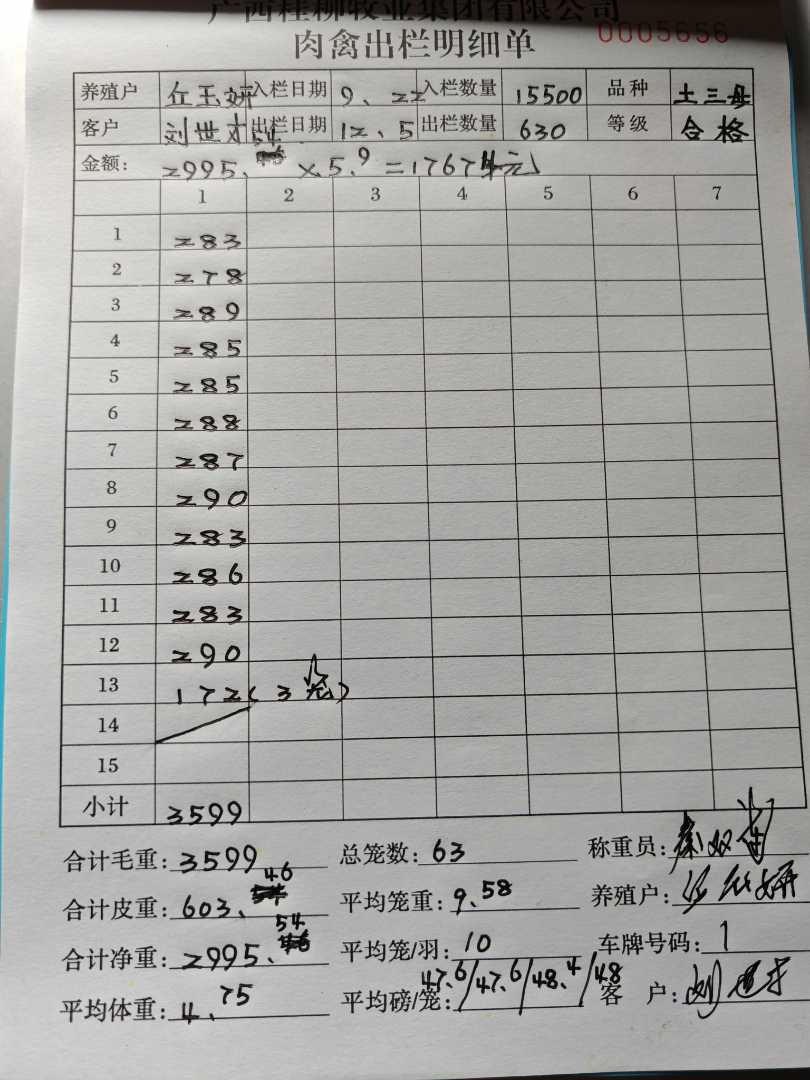 广西桂柳牧业集团有限公司
肉禽出栏明细单 0005656
养殖户 丘玉妍 入栏日期 9、22 入栏数量 15500 品种 土三母
客户 刘世才 出栏日期 12、5 出栏数量 630 等级 合格
金额: 2995.54 × 5.9 = 17674元
1 2 3 4 5 6 7
1 283
2 278
3 289
4 285
5 285
6 288
7 287
8 290
9 283
10 286
11 283
12 290
13 172(3笼)
14
15
小计 3599
合计毛重: 3599 总笼数: 63 称重员:
合计皮重: 603.46 平均笼重: 9.58 养殖户:
合计净重: 2995.54 平均笼/羽: 10 车牌号码: 1
平均体重: 4.75 平均磅/笼: 47.6/47.6/48.4/48 客户: